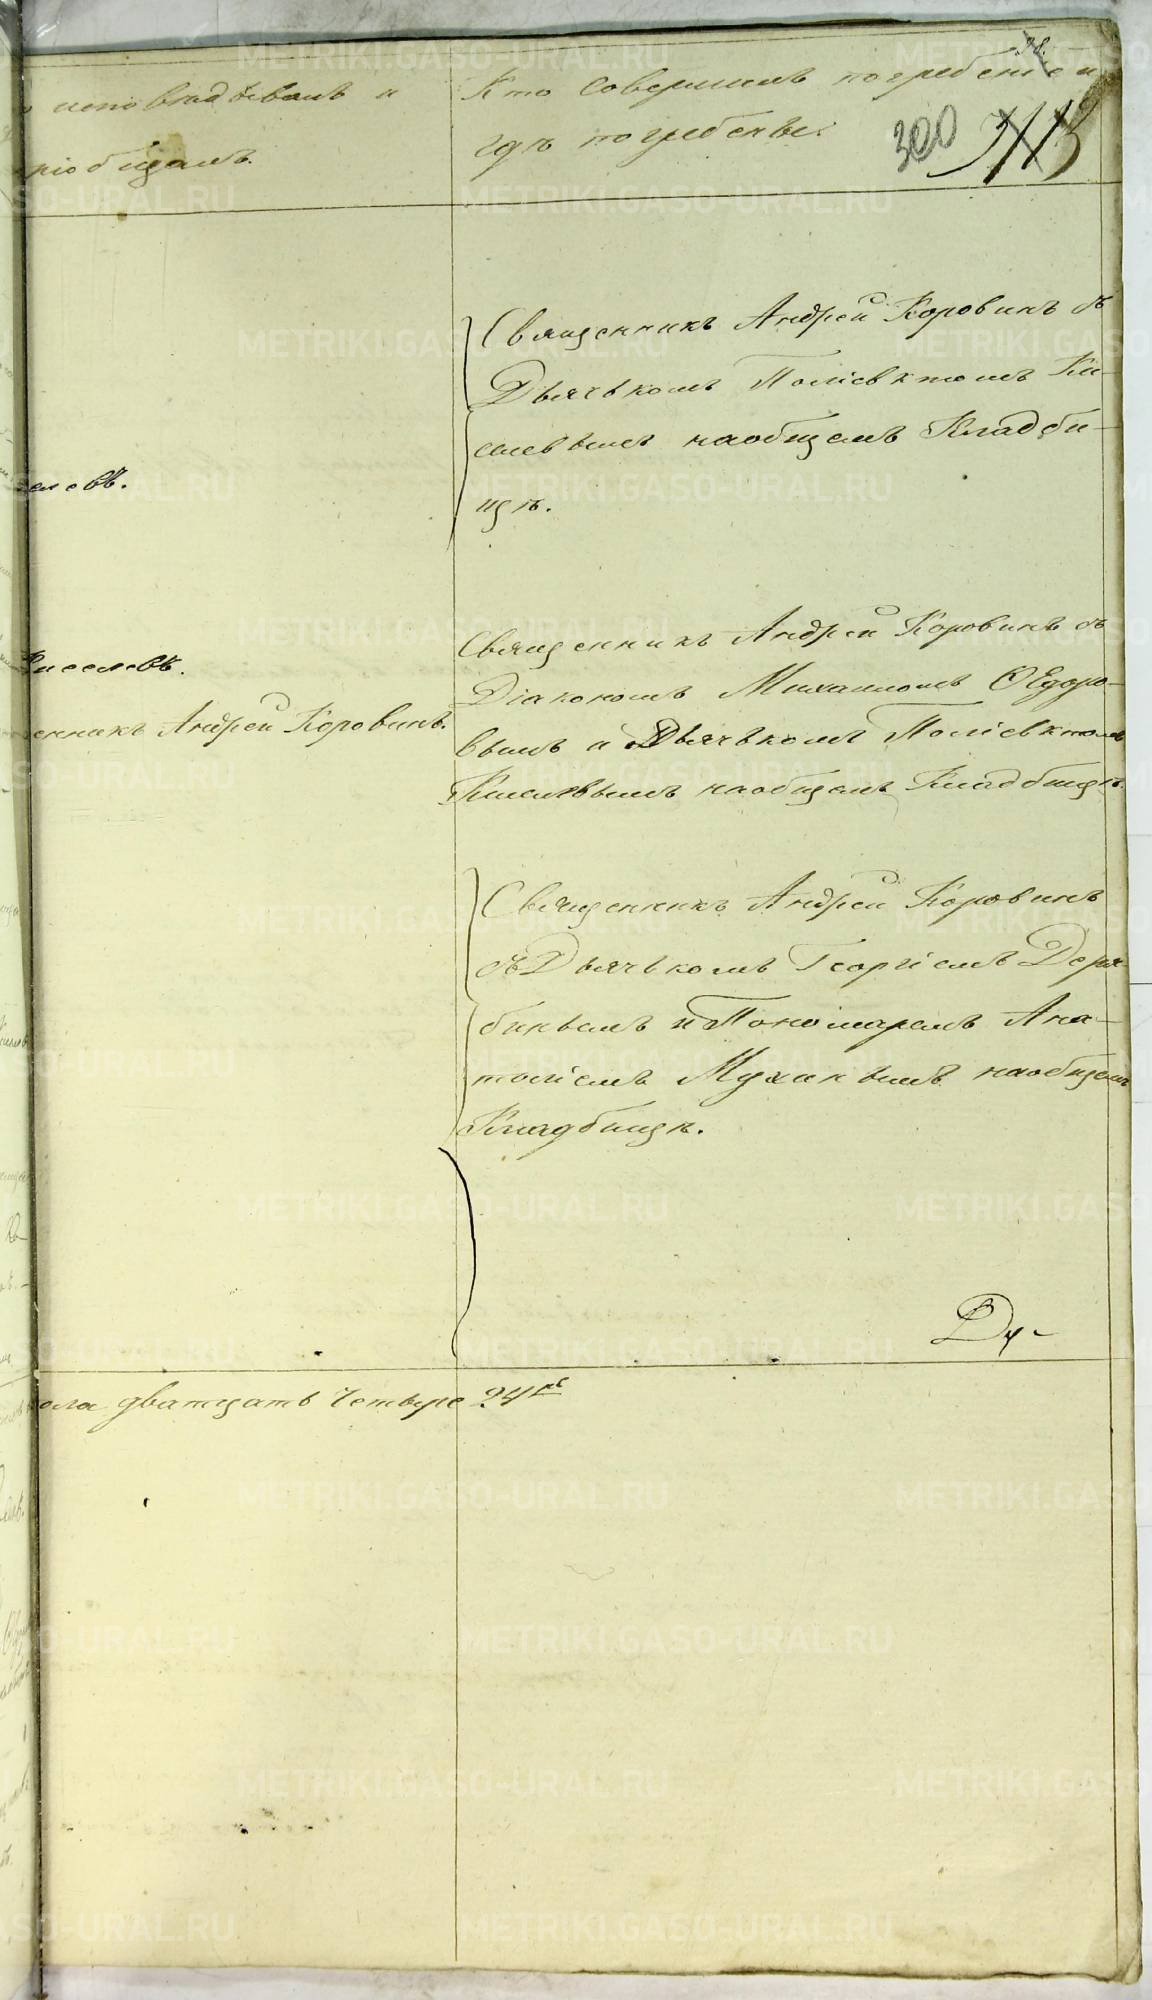 98.
исповѣдывалъ и
Кто совершилъ погребеніе и
гдѣ погребены.
300
пріобщалъ.
Священникъ Андрей Коровинъ съ
Дьячькомъ Поліевктомъ Ки-
селевымъ наобщемъ Кладби-
щѣ.
селевъ.
Киселевъ.
енникъ Андрей Коровинъ.
Священникъ Андрей Коровинъ съ
Діакономъ Михаиломъ Ѳедоро-
вымъ и Дьячькомъ Поліевктомъ
Киселевымъ наобщемъ Кладбищѣ.
Священникъ Андрей Коровинъ
съ Дьячькомъ Георгіемъ Деря-
бинымъ и Пономаремъ Ана-
толіемъ Мухинымъ наобщемъ
Кладбищѣ.
Ду-
пола дватцать четыре 24ре
METRIKI.GASO-URAL.RU